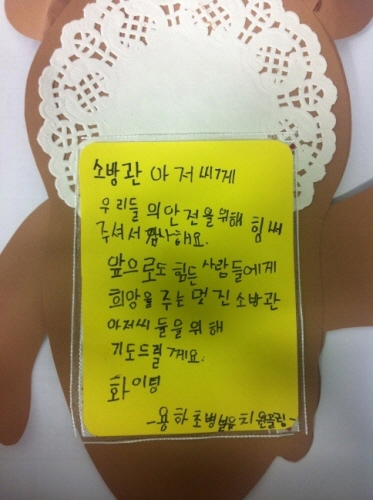 소방관 아저씨께
우리들의 안전을 위해 힘써
주셔서 감사해요.
앞으로도 힘든 사람들에게
희망을 주는 멋진 소방관
아저씨들을 위해
기도드릴게요.
화이팅
-용하초병설유치원올림-